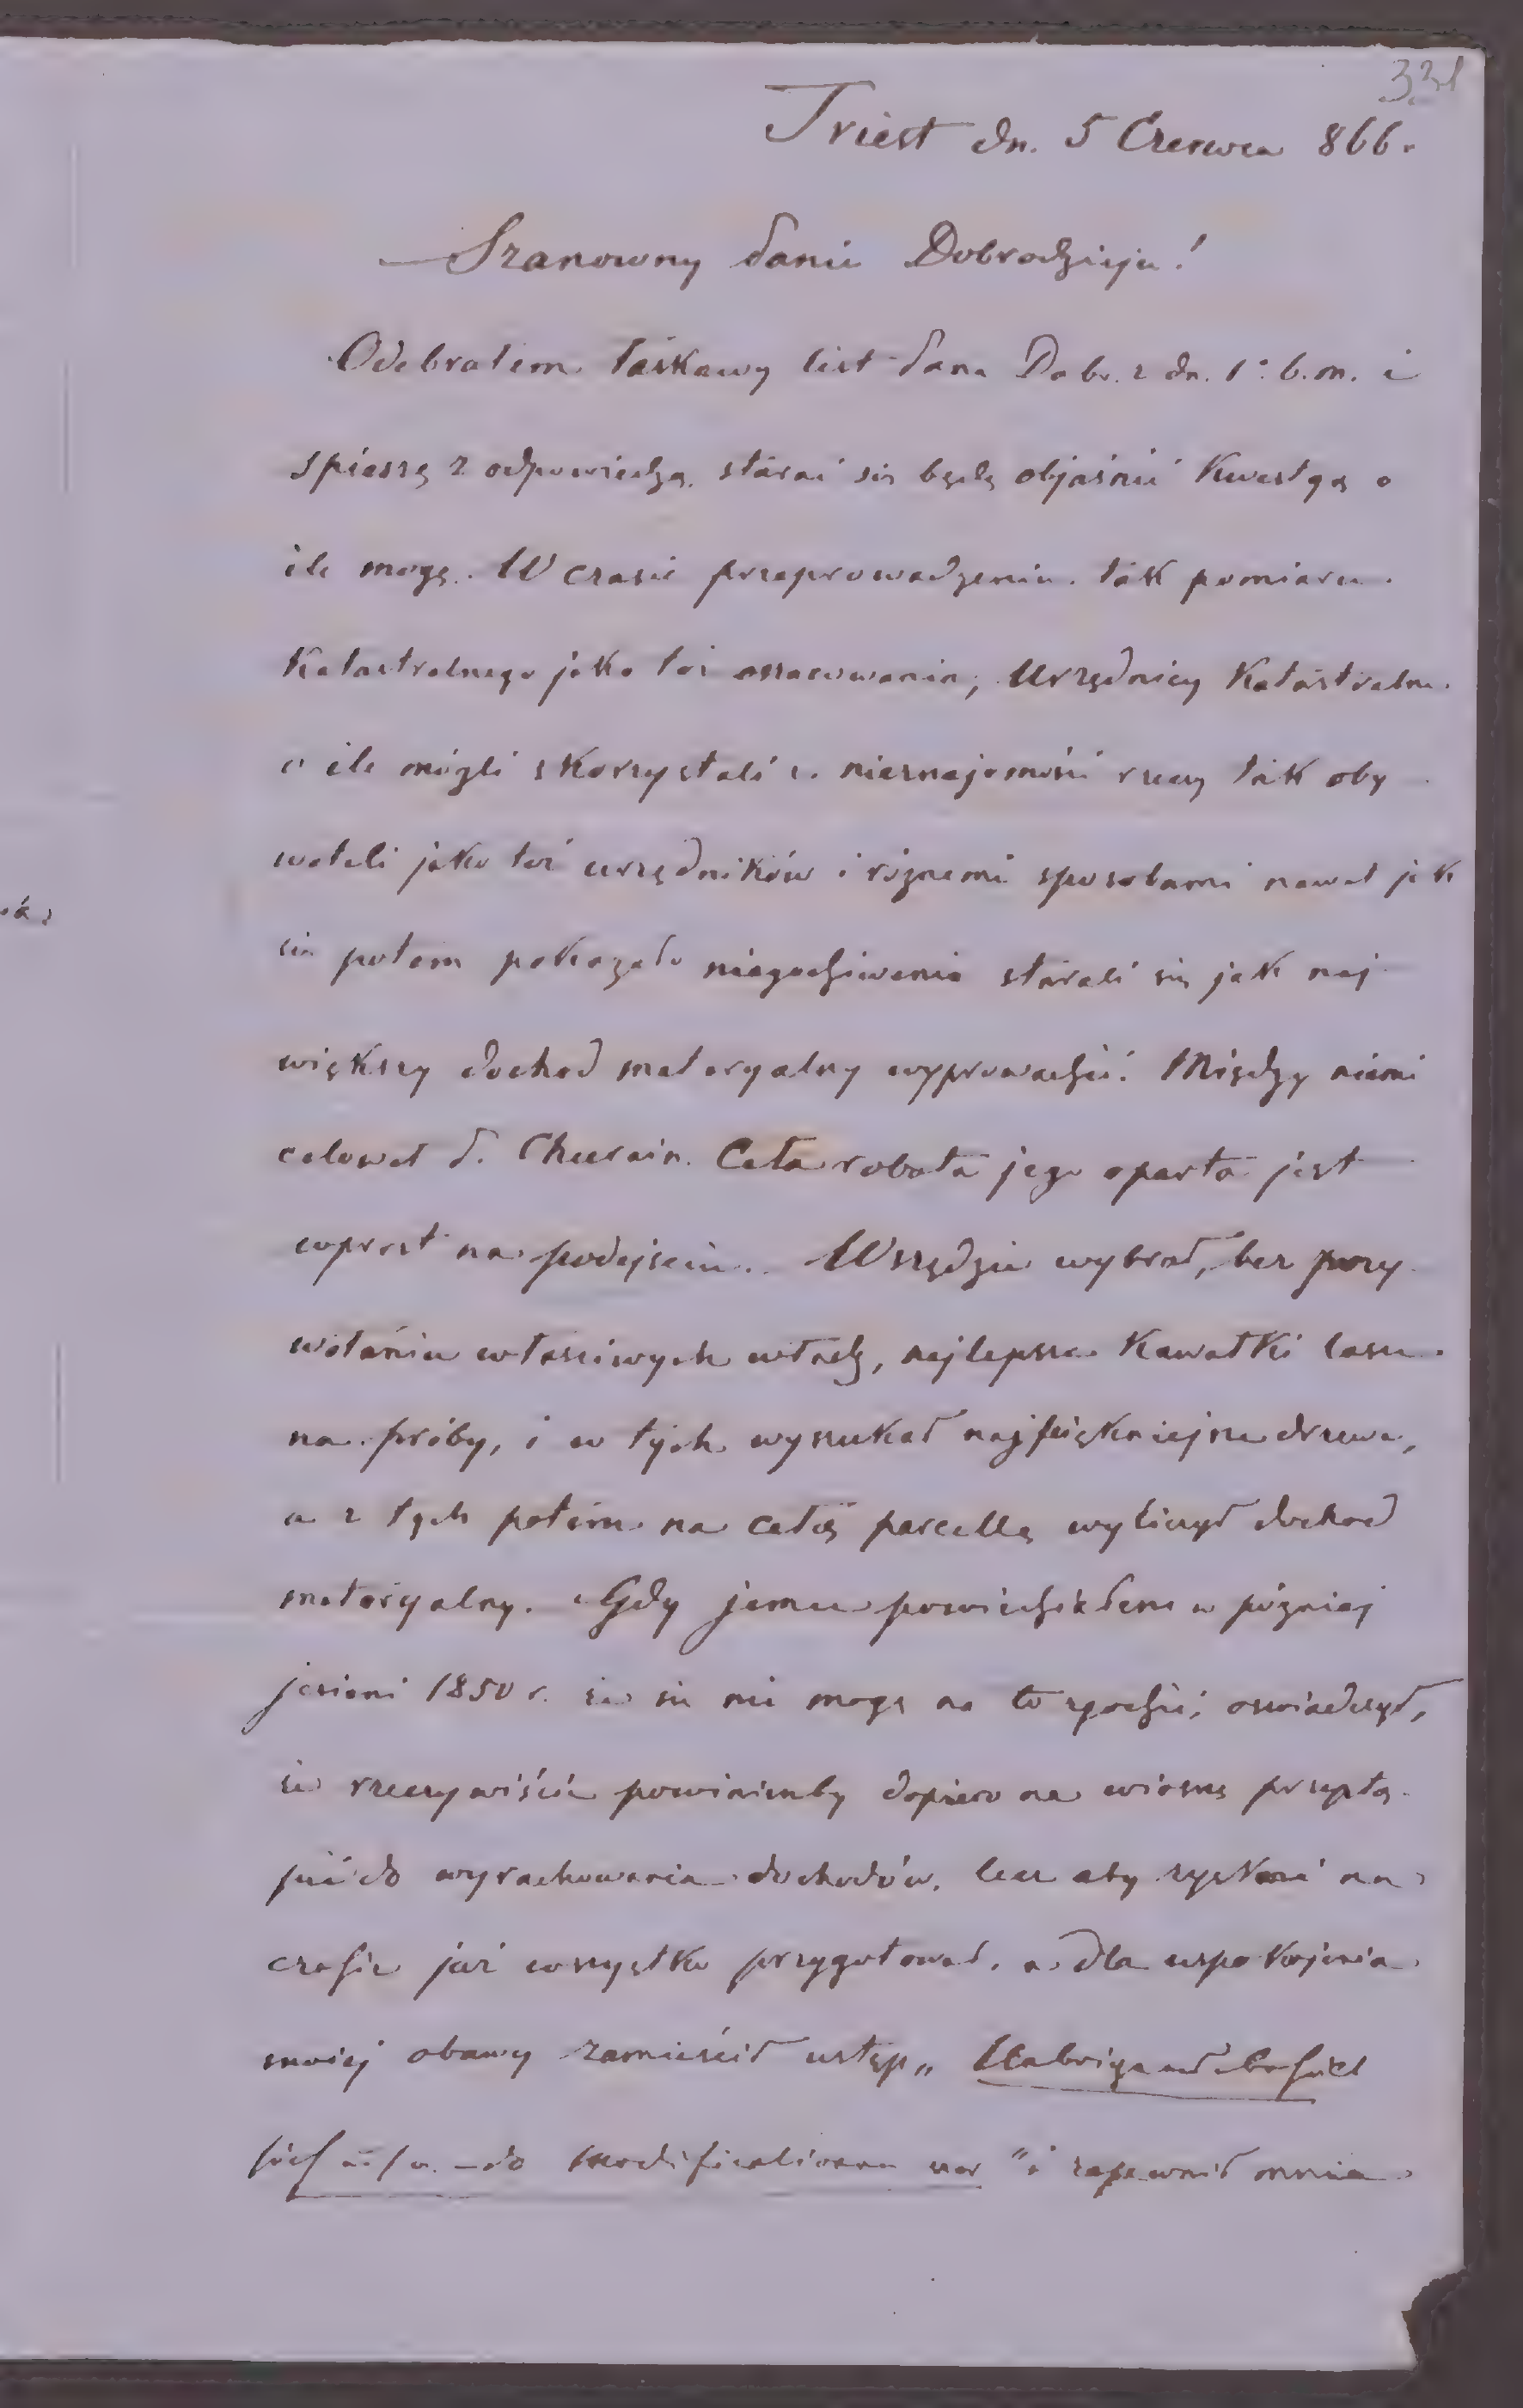 331
Triest dn. 5 Czerwca 866.
Szanowny Panie Dobrodzieju!
Odebrałem łaskawy list Pana Dobr. z dn. 1° b.m. i
spieszę z odpowiedzą. starać się będę objaśnić kwestyą o
ile mogę. W czasie przeprowadzenia tak pomiaru
Katastralnego jako też oszacowania, Urzędnicy Katastralni
o ile mogli skorzystali z nieznajomości rzeczy tak oby
wateli jako też urzędników i różnemi sposobami nawet jak
się potem pokazało niegodziwemi starali się jak naj
większy dochod materyalny wyprowadzić. Między niemi
celował P. Cała robota jego oparta jest
wprost na podejsciu. Wszędzie wybrał, bez przy
wołania własciwych władz, najlepsze kawałki lasu
na próby, i w tych wyszukał najpiękniejsze drzewa,
a z tych potem na całą parcellę wyliczył dochod
materyalny. Gdy jemu powiedziałem w później
jesieni 1850 r. że się nie mogę na to zgodzić, oswiadczył,
że rzeczywiście powinienby dopiero na wiosnę przystą
pić do wyrachowania dochodów, lecz aby zyskać na
czasie już wszystko przygotował, a dla uspokojenia
mojej obawy zamieścił ustęp „
" i zapewnił mnie